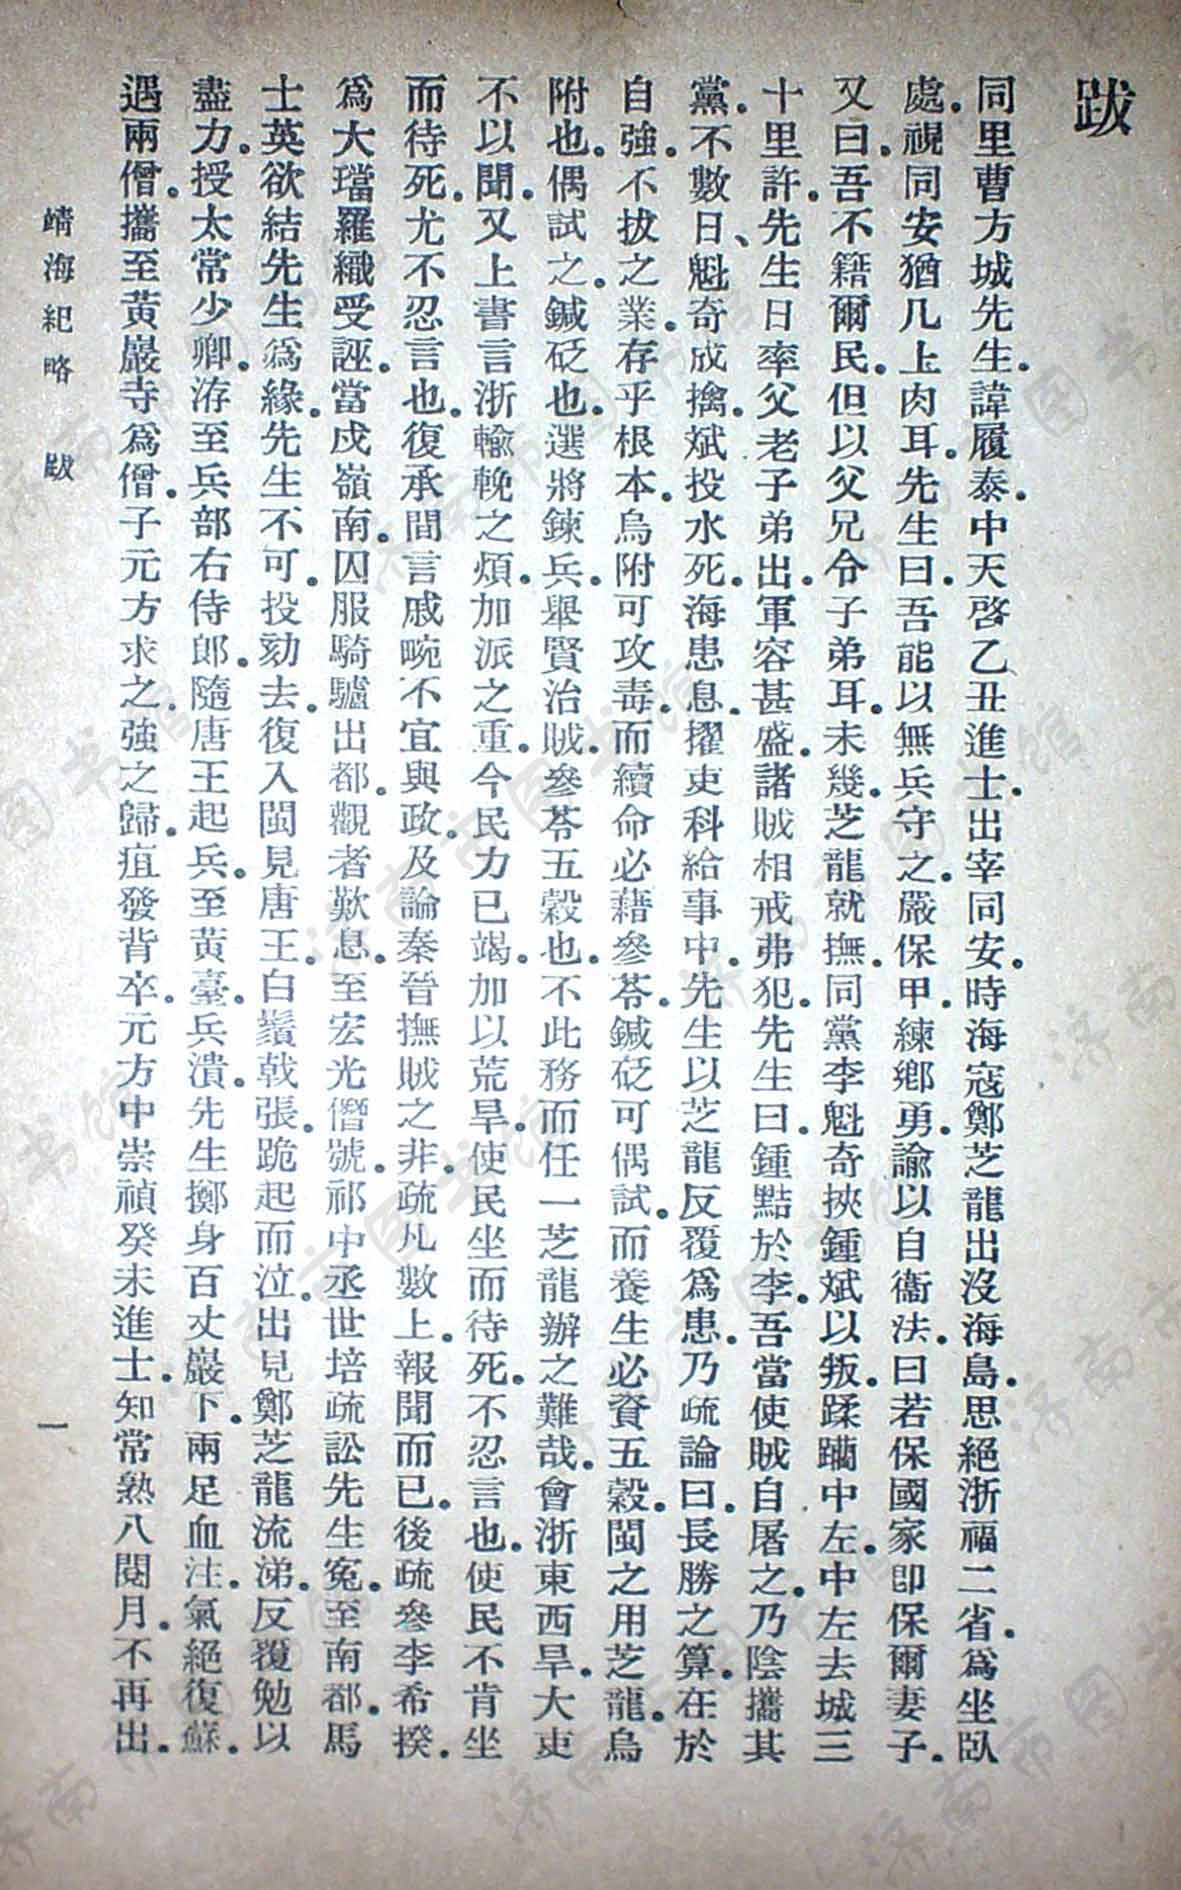 跋
同里曹方城先生。諱履泰。中天啓乙丑進士。出宰同安。時海寇鄭芝龍出沒海島。思絕浙福二省。爲坐臥
處。視同安猶几上肉耳。先生曰。吾能以無兵守之。嚴保甲。練鄉勇。諭以自衞法。曰若保國家卽保爾妻子。
又曰。吾不籍爾民。但以父兄令子弟耳。未幾。芝龍就撫。同黨李魁奇挾鍾斌以叛。蹂躪中左。中左去城三
十里許。先生日率父老子弟出。軍容甚盛。諸賊相戒弗犯。先生曰。鍾黠於李。吾當使賊自屠之。乃陰攜其
黨。不數日、魁奇成擒。斌投水死。海患息。擢吏科給事中。先生以芝龍反覆爲患。乃疏論曰。長勝之算。在於
自強。不拔之業。存乎根本。烏附可攻毒。而續命必藉參苓。鍼砭可偶試。而養生必資五穀。閩之用芝龍。烏
附也。偶試之。鍼砭也。選將鍊兵。舉賢治賊。參苓五穀也。不此務而任一芝龍辦之難哉。會浙東西旱。大吏
不以聞。又上書言浙輸輓之煩。加派之重。今民力已竭。加以荒旱。使民坐而待死。不忍言也。使民不肯坐
而待死。尤不忍言也。復承間言戚畹不宜與政。及論秦晉撫賊之非。疏凡數上。報聞而已。後疏參李希揆。
爲大璫羅織受誣。當戍嶺南。囚服騎驢出都。觀者歎息。至宏光僭號。祁中丞世培疏訟先生冤。至南都。馬
士英欲結先生爲緣。先生不可。投劾去。復入閩見唐王。白鬚戟張。跪起而泣。出見鄭芝龍流涕。反覆勉以
盡力。授太常少卿。洊至兵部右侍郎。隨唐王起兵。至黃臺。兵潰。先生擲身百丈巖下。兩足血注。氣絕復蘇。
遇兩僧。攜至黃巖寺爲僧。子元方求之。強之歸。疽發背卒。元方中崇禎癸未進士。知常熟八閱月。不再出。
靖海紀略 跋
一